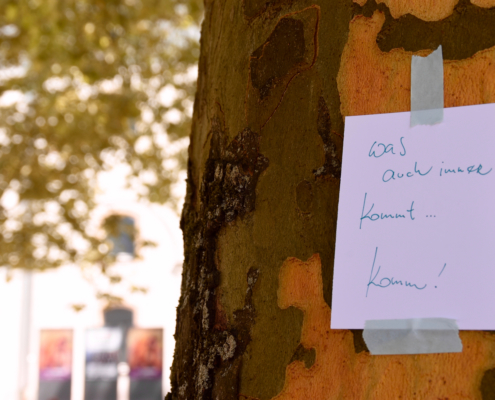 was
auch immer
kommt...
Komm!